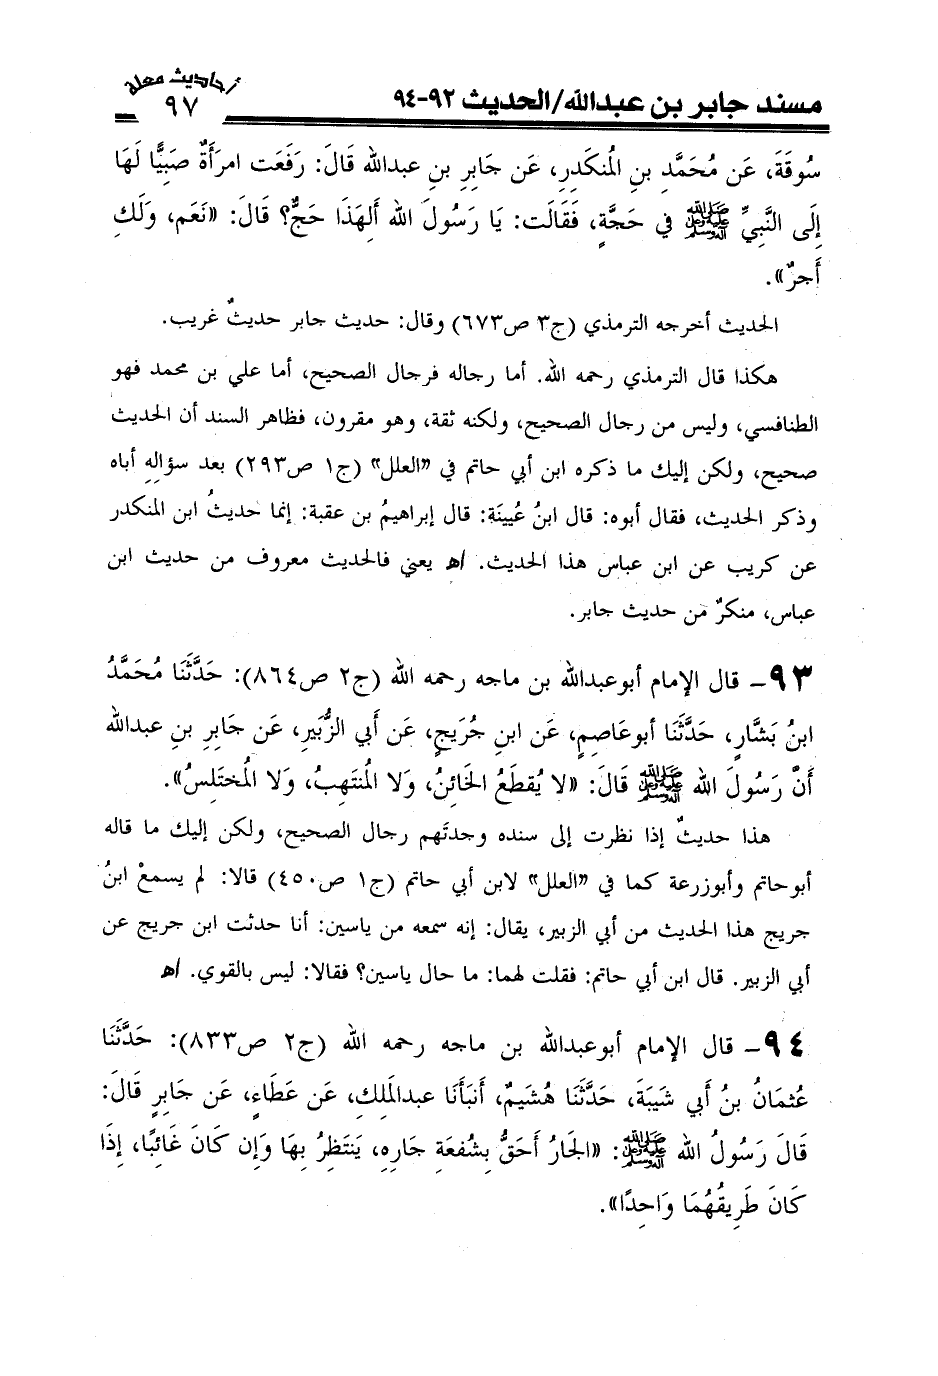 مسند جابر بن عبدالله/الحديث ٩٢-٩٤
أحاديث معلة
٩٧
سُوقَةَ، عَن مُحَمَّدِ بنِ المُنكَدِرِ، عَن جَابِرِ بنِ عبدالله قَالَ: رَفَعَت امرَأَةٌ صَبِيًّا لَهَا
إِلَى النَّبِيِّ ﷺ في حَجَّةٍ، فَقَالَت: يَا رَسُولَ الله أَلِهَذَا حَجٌّ؟ قَالَ: «نَعَم، وَلَكِ
أَجرٌ».
الحديث أخرجه الترمذي (ج٣ ص٦٧٣) وقال: حديث جابر حديثٌ غريب.
هكذا قال الترمذي رحمه الله. أما رجاله فرجال الصحيح، أما علي بن محمد فهو
الطنافسي، وليس من رجال الصحيح، ولكنه ثقة، وهو مقرون، فظاهر السند أن الحديث
صحيح، ولكن إليك ما ذكره ابن أبي حاتم في "العلل" (ج١ ص٢٩٣) بعد سؤالِهِ أباه
وذكر الحديث، فقال أبوه: قال ابنُ عُيينَة: قال إبراهيمُ بن عقبة: إنما حديثُ ابن المنكدر
عن كريب عن ابن عباس هذا الحديث. اﻫ يعني فالحديث معروف من حديث ابن
عباس، منكرٌ من حديث جابر.
٩٣- قال الإمام أبوعبدالله بن ماجه رحمه الله (ج٢ ص٨٦٤): حَدَّثَنَا مُحَمَّدُ
ابنُ بَشَّارٍ، حَدَّثَنَا أبوعَاصِمٍ، عَن ابنِ جُرَيجٍ، عَن أَبي الزُّبَيرِ، عَن جَابِرِ بنِ عبدالله
أَنَّ رَسُولَ الله ﷺ قَالَ: «لا يُقطَعُ الخَائِنُ، وَلا المُنتَهِبُ، وَلا المُختَلِسُ».
هذا حديثٌ إذا نظرت إلى سنده وجدتَهم رجال الصحيح، ولكن إليك ما قاله
أبوحاتم وأبوزرعة كما في "العلل" لابن أبي حاتم (ج١ ص٤٥٠) قالا: لم يسمعْ ابنُ
جريج هذا الحديث من أبي الزبير، يقال: إنه سمعه من ياسين: أنا حدثت ابن جريج عن
أبي الزبير. قال ابن أبي حاتم: فقلت لهما: ما حال ياسين؟ فقالا: ليس بالقوي. اﻫ
٩٤- قال الإمام أبوعبدالله بن ماجه رحمه الله (ج٢ ص٨٣٣): حَدَّثَنَا
عُثمَانُ بنُ أَبي شَيبَةَ، حَدَّثَنَا هُشَيمٌ، أَنبَأَنَا عبدالمَلِكِ، عَن عَطَاءٍ، عَن جَابِرٍ قَالَ:
قَالَ رَسُولُ الله ﷺ: «الجَارُ أَحَقُّ بِشُفعَةِ جَارِهِ، يَنتَظِرُ بِهَا وَإِن كَانَ غَائِبًا، إِذَا
كَانَ طَرِيقُهُمَا وَاحِدًا».